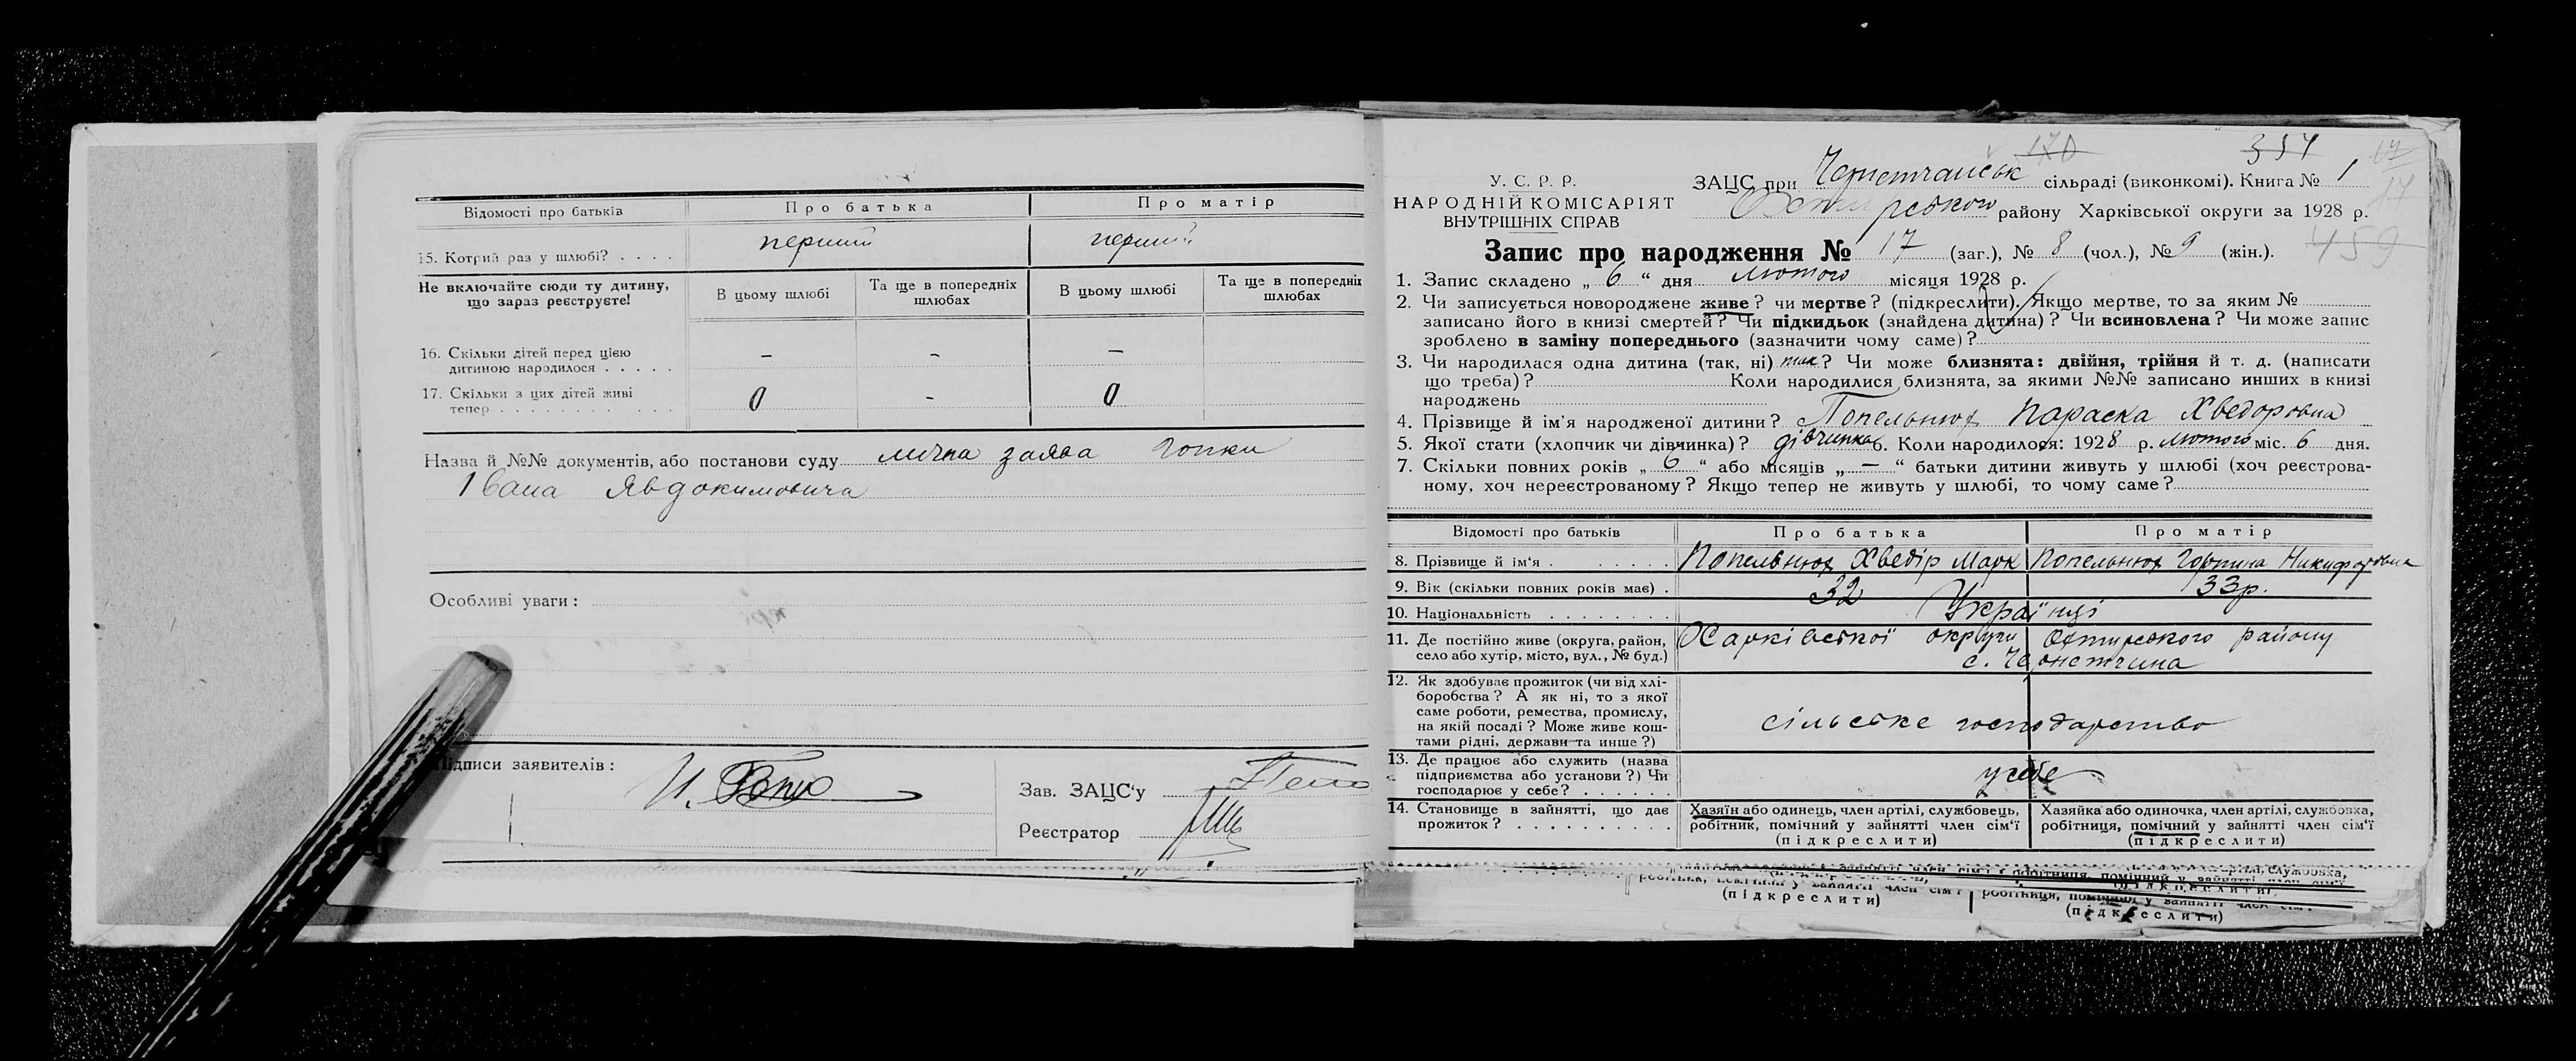 Відомості про батьків
Про батька
Про матір
15. Котрий раз у шлюбі? . . . .
перший
перший
Не включайте сюди ту дитину, що зараз реєструєте!
В цьому шлюбі
Та ще в попередніх шлюбах
В цьому шлюбі
Та ще в попередніх шлюбах
16. Скільки дітей перед цією
дитиною народилося . . . . .
– – –
17. Скільки з цих дітей живі
тепер . . . . . . . . . . .
0 - 0
Назва й №№ документів, або постанови суду лична заява Гопки
Івана Явдокимовича
Особливі уваги :
Підписи заявителів :
И.
Зав. ЗАЦС'у
Реєстратор
170
354
17
17
459
У. С. Р. Р.
НАРОДНІЙ КОМІСАРІЯТ
ВНУТРІШНІХ СПРАВ
ЗАЦС при Чернетчанськ сільраді (виконкомі). Книга № 1
Охтирського району Харківської округи за 1928 р.
Запис про народження № 17 (заг.), № 8 (чол.), № 9 (жін.).
1. Запис складено „ 6 “ дня лютого місяця 1928 р.
2. Чи записується новороджене живе? чи мертве? (підкреслити). Якщо мертве, то за яким №
записано його в книзі смертей? Чи підкидьок (знайдена дитина)? Чи всиновлена? Чи може запис
зроблено в заміну попереднього (зазначити чому саме)?
3. Чи народилася одна дитина (так, ні) так? Чи може близнята: двійня, трійня й т. д. (написати
що треба)? Коли народилися близнята, за якими №№ записано инших в книзі
народжень
4. Прізвище й ім'я народженої дитини? Попельнюх Параска Хведоровна
5. Якої стати (хлопчик чи дівчинка)? дівчинка 6. Коли народилося: 1928 р. лютого міс. 6 дня.
7. Скільки повних років „ 6 “ або місяців „ — “ батьки дитини живуть у шлюбі (хоч реєстрова-
ному, хоч нереєстрованому? Якщо тепер не живуть у шлюбі, то чому саме?
Відомості про батьків
Про батька
Про матір
8. Прізвище й ім'я . . . . . . . Попельнюх Хведір Марк Попельнюх Горпина Никифоровна
9. Вік (скільки повних років має) . 32 33р.
10. Національність . . . . . . . . Українці
11. Де постійно живе (округа, район,
село або хутір, місто, вул., № буд.)
Харківської округи Охтирського району
с. Чернетчина
12. Як здобуває прожиток (чи від хлі-
боробства? А як ні, то з якої
саме роботи, ремества, промислу,
на якій посаді? Може живе кош-
тами рідні, держави та инше?)
сільське господарство
13. Де працює або служить (назва
підприємства або установи?) Чи
господарює у себе? . . . . . .
у себе
14. Становище в зайнятті, що дає
прожиток? . . . . . . . . . .
Хазяїн або одинець, член артілі, службовець,
робітник, помічний у зайнятті член сім'ї
(підкреслити)
Хазяйка або одиночка, член артілі, службовка,
робітниця, помічний у зайнятті член сім'ї
(підкреслити)
(підкреслити)
(підкреслити)